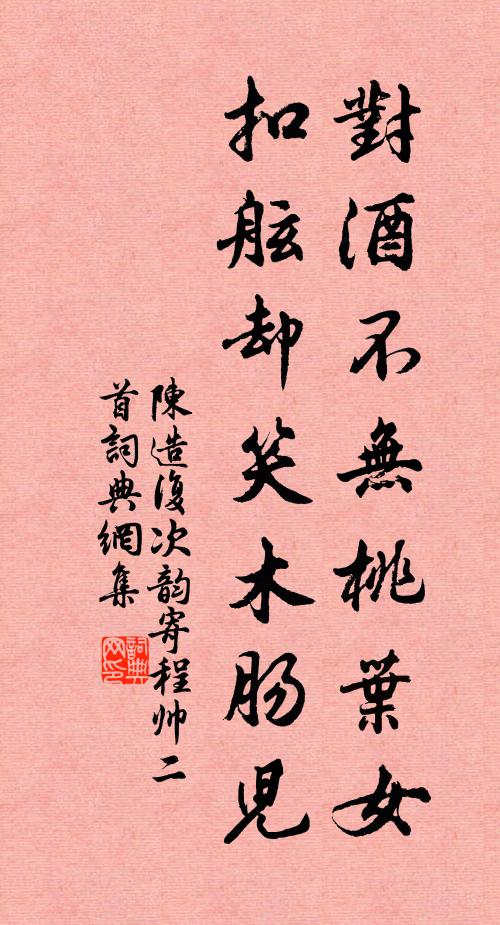 對酒不無桃葉女
扣舷却笑木肠兒
陳造復次韵寄程帅二
首詞典網集
詞典网印